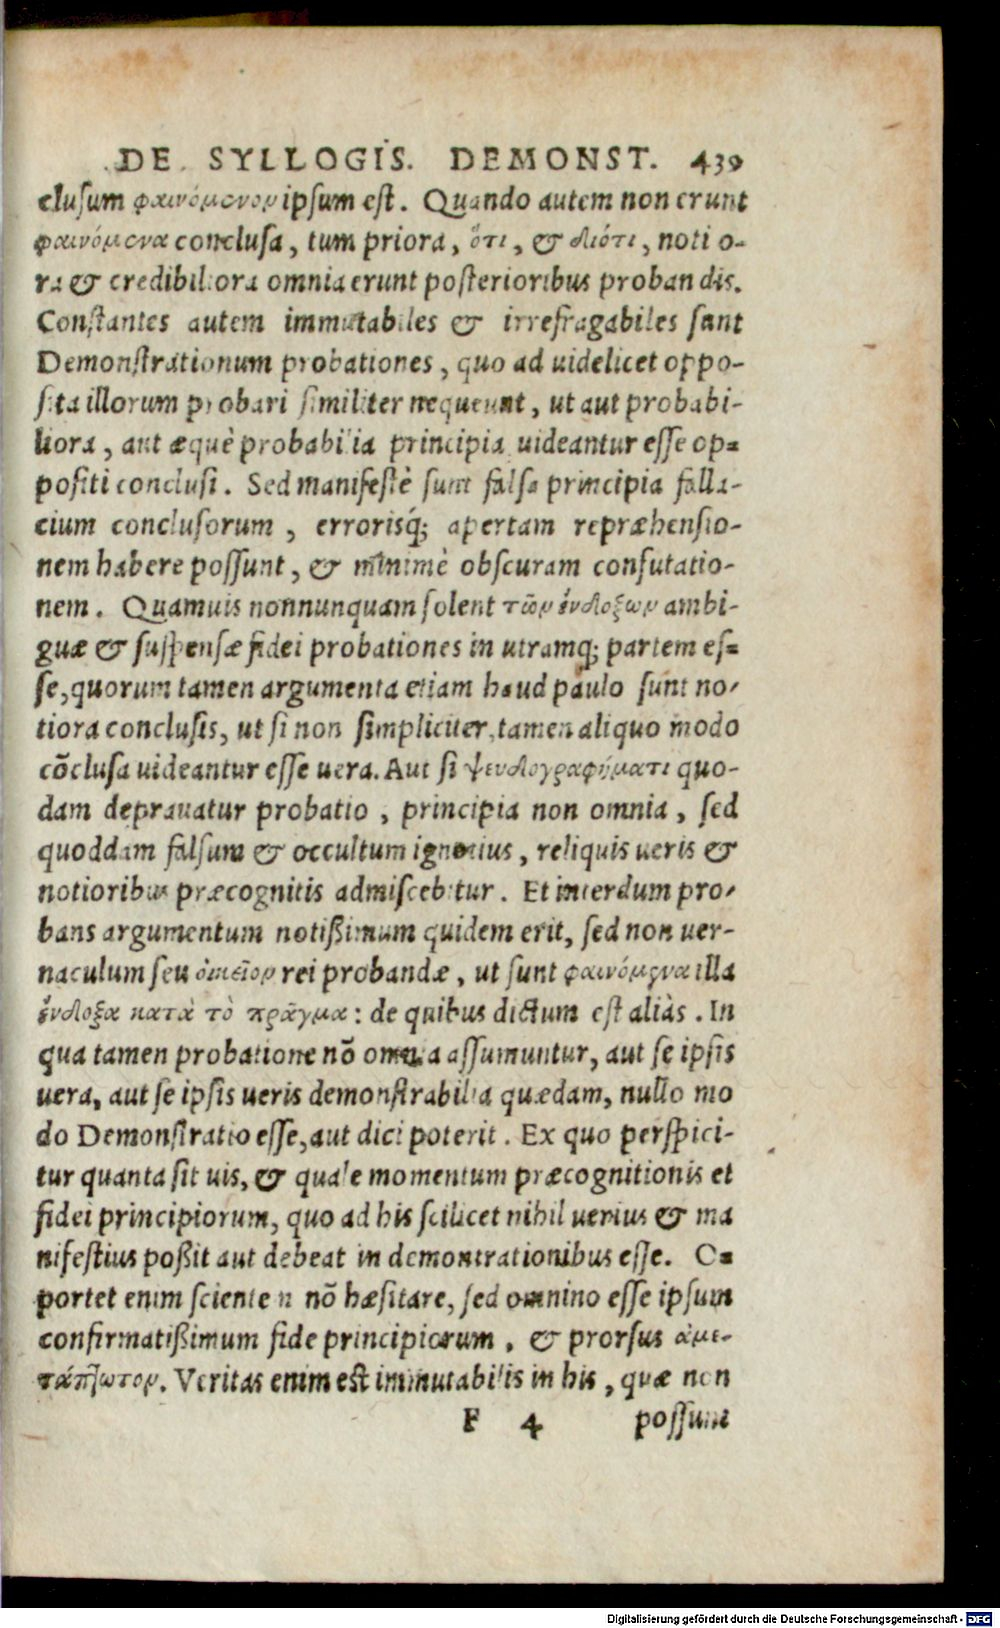 DE SYLLOGIS. DEMONST. 439
clusum φαινόμενον ipsum est. Quando autem non erunt
φαινόμενα conclusa, tum priora, ὅτι, & διότι, notio-
ra & credibiliora omnia erunt posterioribus probandis.
Constantes autem immutabiles & irrefragabiles sunt
Demonstrationum probationes, quo ad uidelicet oppo-
sita illorum probari similiter nequeunt, ut aut probabi-
liora, aut æquè probabilia principia uideantur esse op-
positi conclusi. Sed manifestè sunt falsa principia falla-
cium conclusorum, errorisq́; apertam repræhensio-
nem habere possunt, & minimè obscuram confutatio-
nem. Quamuis nonnunquam solent τῶν ἐνδοξων ambi-
guæ & suspensæ fidei probationes in utramq; partem es-
se, quorum tamen argumenta etiam haud paulo sunt no-
tiora conclusis, ut si non simpliciter, tamen aliquo modo
cõclusa uideantur esse uera. Aut si ψευδογραφήματι quo-
dam deprauatur probatio, principia non omnia, sed
quoddam falsum & occultum ignotius, reliquis ueris &
notioribus præcognitis admiscebitur. Et interdum pro-
bans argumentum notißimum quidem erit, sed non uer-
naculum seu ὀικεῖον rei probandæ, ut sunt φαινόμενα illa
ἔνδοξα κατὰ τὸ πρᾶγμα: de quibus dictum est aliàs. In
qua tamen probatione nõ omnia assumuntur, aut se ipsis
uera, aut se ipsis ueris demonstrabilia quædam, nullo mo
do Demonstratio esse, aut dici poterit. Ex quo perspici-
tur quanta sit uis, & quale momentum præcognitionis et
fidei principiorum, quo ad his scilicet nihil uerius & ma
nifestius poßit aut debeat in demontrationibus esse. O-
portet enim scientem nõ hæsitare, sed omnino esse ipsum
confirmatißimum fide principiorum, & prorsus ἀμε-
τάπτωτον. Veritas enim est immutabilis in his, quæ non
F 4 possunt
Digitalisierung gefördert durch die Deutsche Forschungsgemeinschaft - DFG